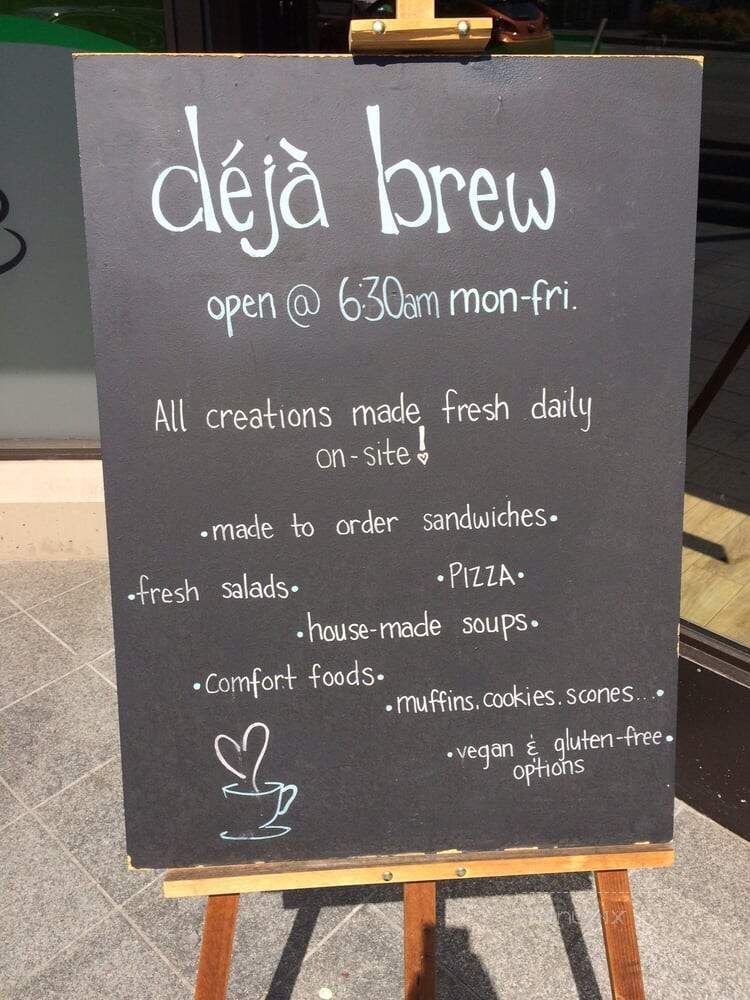 déjà brew
open @ 6:30am mon-fri.
All creations made fresh daily
on-site!
•made to order sandwiches•
•fresh salads•
•PIZZA•
•house-made soups•
•comfort foods•
•muffins.cookies.scones...•
•vegan & gluten-free•
options